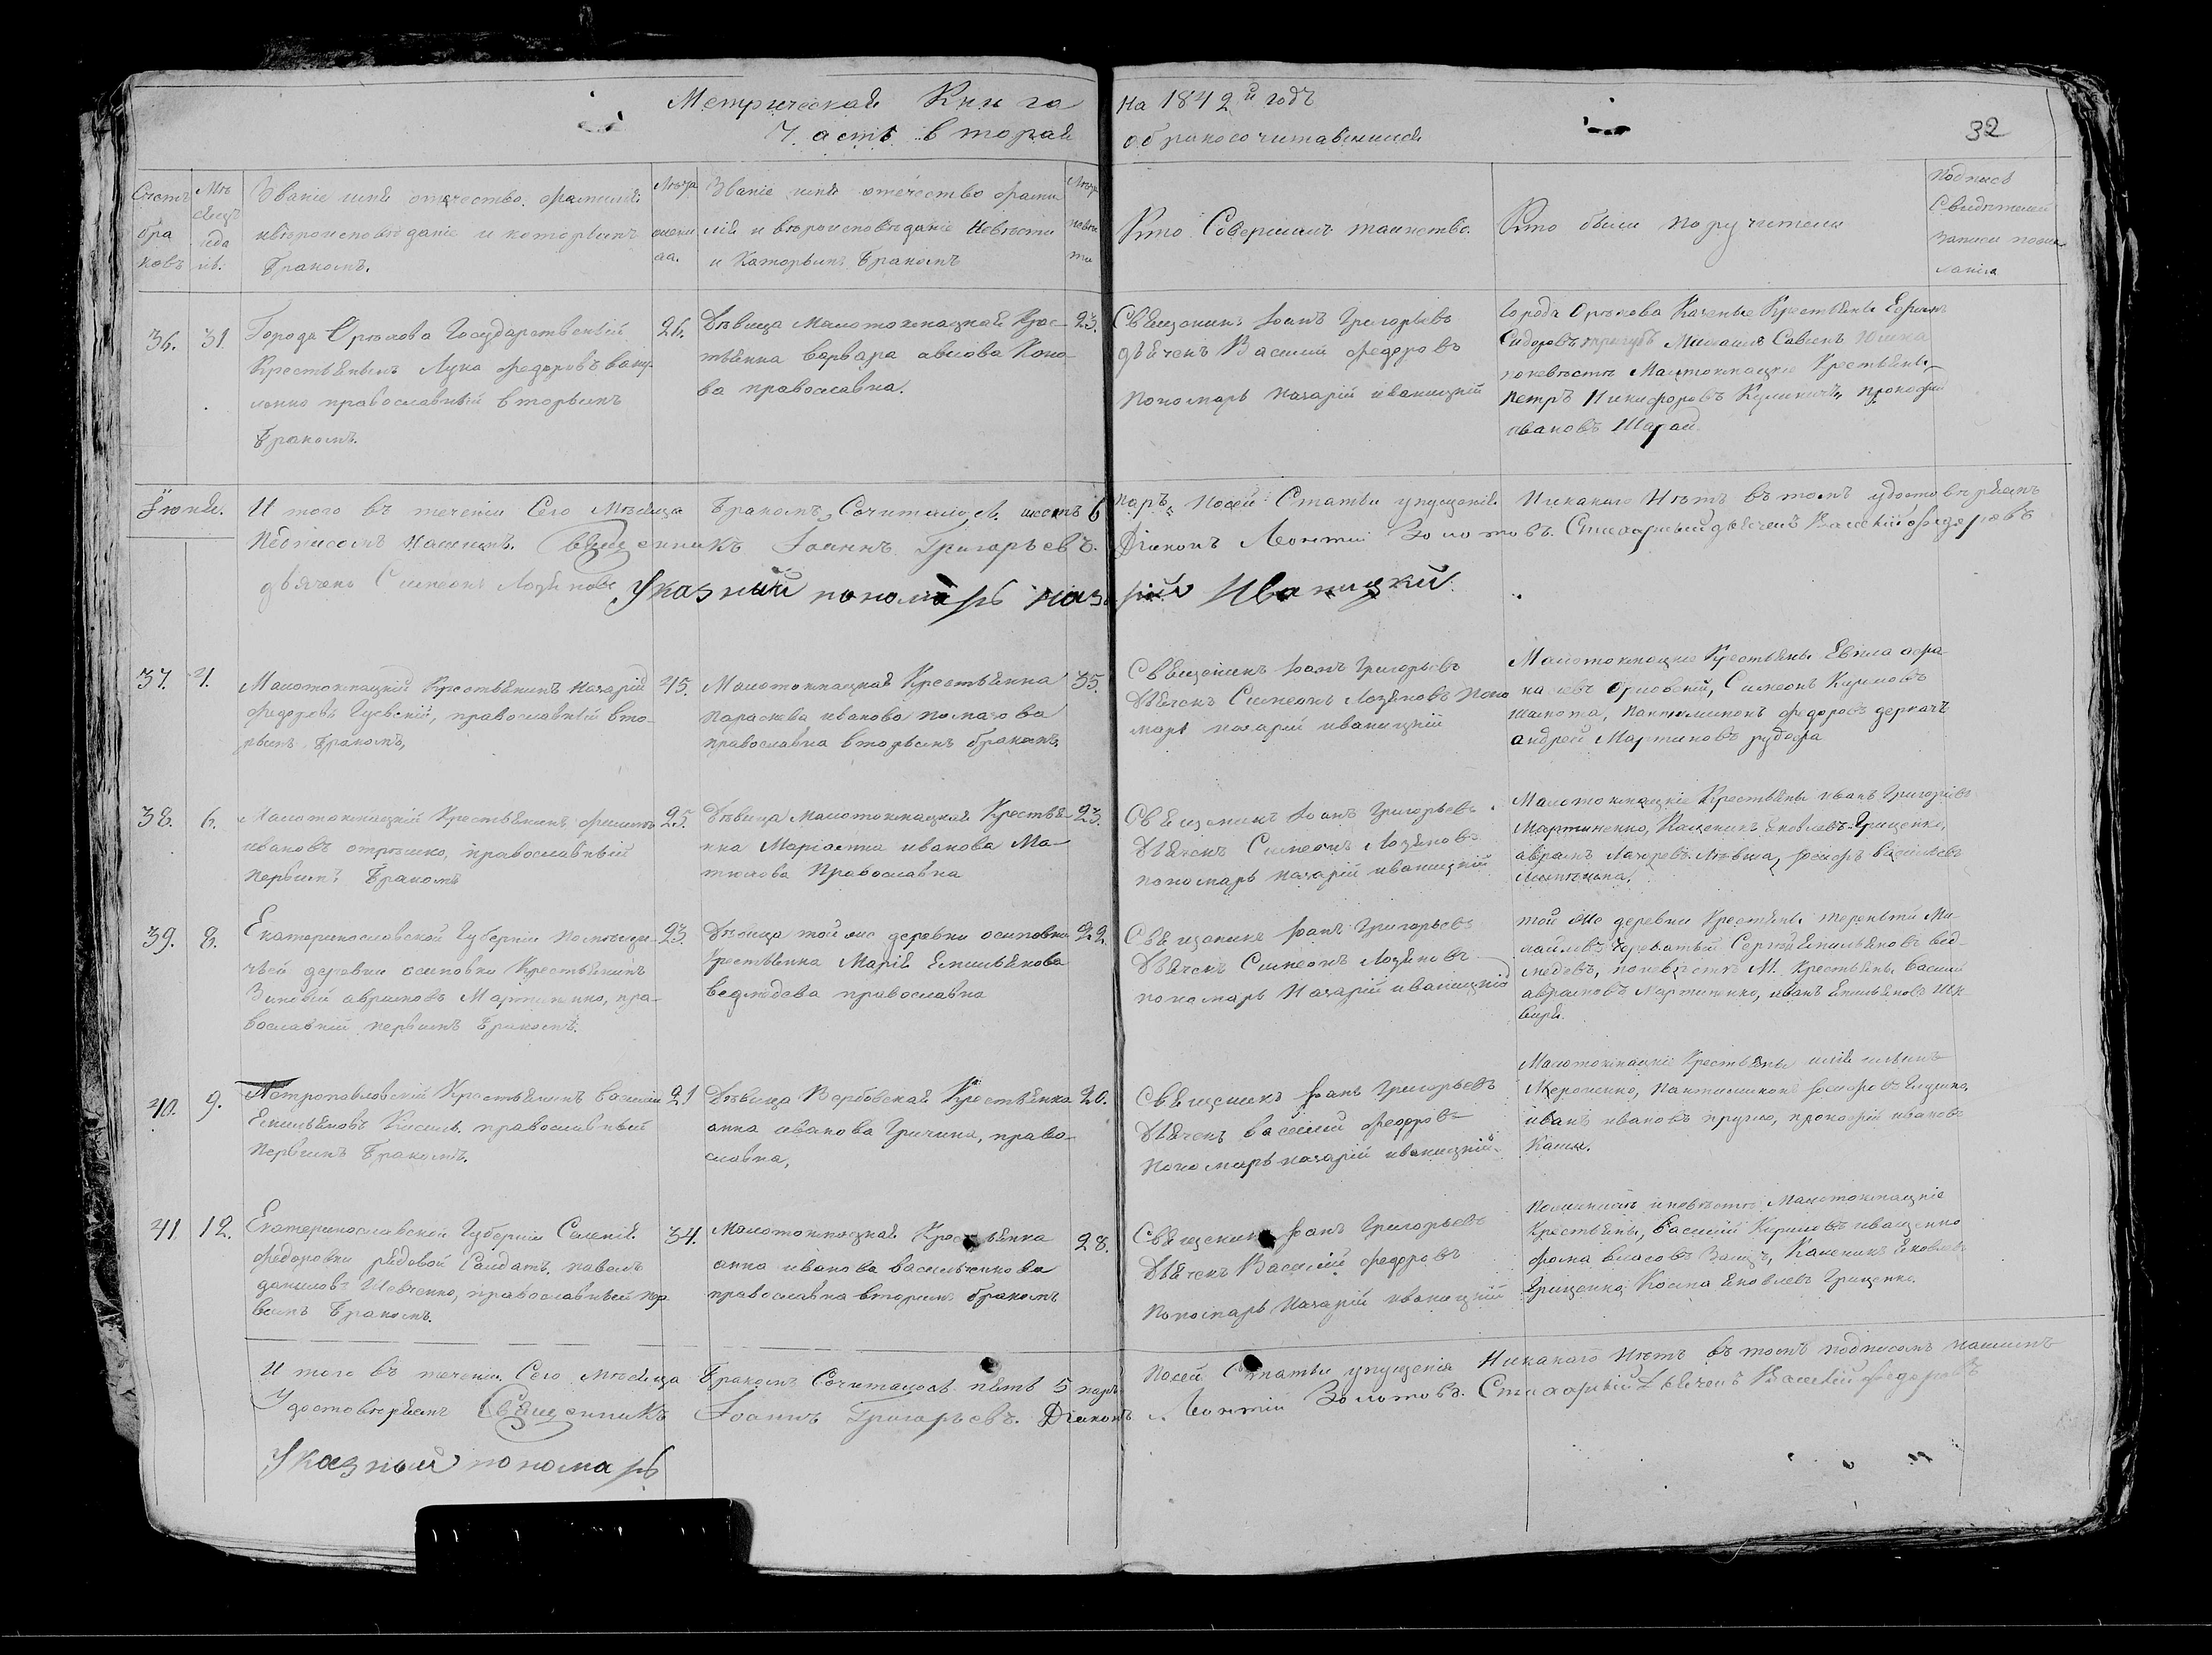 Метрической Книга на 1842й годъ
Часть вторая о бракосочитавшихся
32
Счетъ браковъ
Мѣсяцъ
Званіе имя отечество фамилія
ивѣроисповѣданіе и которымъ
бракомъ.
Лѣта
Званіе имя отечество фами
лія и вѣроисповѣданіе Невѣсти
и Каторымъ бракомъ
Лѣта
невѣ
сти
Кто Совершалъ таинство.
Кто были поручители
Подпись
Свидѣтелей
записи
36. 31.
Города Орѣхова Государственній
Крестьянинъ Лука федоровъ
православный вторымъ
бракомъ.
26.
Дѣвица Малотокмацкая Крес-
тьянка варвара Коно-
ва православна.
23.
Священикъ Іоанъ Григорьевъ
дьячекъ Василій федоровъ
Пономарь назарій иваницкій
Города Орѣхова Казенные Крестьяне Ефимъ
Сидоровъ Михаилъ Савинъ
поневѣстѣ Малотокмацкіе Крестьяне
Петръ Никифоровъ Куличъ, прокофій
ивановъ Шарай
Іюня.
И того въ теченіи Сего Мѣсяца бракомъ Сочиталось шесть 6 паръ, Посей Статьи упущенія Никакаго Нѣтъ въ томъ удостовѣряемъ
Подписомъ Нашимъ. Священникъ Іоаннъ Григорьевъ. Діаконъ Леонтій Золотовъ. Стихарный дьячекъ Василій федоровъ
дьячекъ Симеонъ Лозяновъ Указный пономарь назарій Иваницкій.
37. 4.
Малотокмацкій Крестьянинъ Назарій
федоровъ Гуевскій, православный вто-
рымъ бракомъ,
45.
Малотокмацкая Крестьянка
Параскева иванова помазова
православна вторымъ бракомъ
35.
Священикъ Іоанъ Григорьевъ
Дьячекъ Симеонъ Лозяновъ Поно
марь назарій иваницкій
Малотокмацкіе Крестьяне афа-
насіевъ Орловскій, Симеонъ Кириловъ
Пантелимонъ федоровъ деркачъ
андрей Мартиновъ
38. 6.
Малотокмацкій Крестьянинъ филипъ
ивановъ отрѣшко, православный
первымъ бракомъ
25.
Дѣвица малотокмацкая Крестья-
нка Маріамна иванова Ма-
тюхова Православна
23.
Священикъ Іоанъ Григорьевъ
Дьячекъ Симеонъ Лозяновъ
пономарь назарій иваницкій
Малотокмацкіе Крестьяне иванъ Григоріевъ
Мартиненко, Каленикъ Яковлевъ Грищенко,
аврамъ Лазаревъ Лѣвша, іосифъ василіевъ
39. 8.
Екатеринославской Губерніи помѣщи-
чьей деревни осиповки Крестьянинъ
Зиновій аврамовъ Мартиненко, пра-
вославній первымъ бракомъ.
23.
Дѣвица той же деревни осиповки
Крестьянка Марія Емильянова
ведмѣдева православна
22.
Священикъ Іоанъ Григорьевъ
Дьячекъ Симеонъ Лозяновъ
пономарь Назарій иваницкій
той же деревни Крестьяне терентій Ми-
хайловъ Череватый Сергей Емильяновъ вед-
медовъ, поневѣстѣ М. Крестьяне василій
аврамовъ Мартиненко, иванъ Емильяновъ
40. 9.
Петропавловскій Крестьянинъ василій
Емильяновъ Кисиль православный
первымъ бракомъ.
21
Дѣвица Вербовская Крестьянка
анна иванова Гричина, право-
славна,
20.
Священикъ Іоанъ Григорьевъ
Дьячекъ василий федоровъ
Пономарь назарій иваницкій.
Малотокмацкіе Крестьяне
пантилимонъ іосифовъ
иванъ ивановъ кругло, прокофій ивановъ
Каша.
41. 12.
Екатеринославской Губерніи Селенія
федоровки рядовой Салдатъ павелъ
даниловъ Шевченко, православный пер-
вымъ бракомъ.
34.
Малотокмацкая Крестьянка
анна иванова васильченкова
православна вторымъ бракомъ
28.
Священикъ Іоанъ Григорьевъ
Дьячекъ Василій федоровъ
Пономарь Назарій иваницкій
поженихѣ иневѣстѣ Малотокмацкіе
Крестьяне, василій Кириловъ иващенко
фома власовъ Заяцъ, Каленикъ Яковлевъ
Грищенко Косма Яковлевъ Грищенко.
И того въ теченіи Сего Мѣсяца бракомъ Сочиталось пять 5 паръ Посей Статьи упущенія Никакаго Нѣтъ въ томъ подписомъ нашимъ
Удостовѣряемъ Священникъ Іоаннъ Григорьевъ. Діаконъ Леонтій Золотовъ. Стихарный Дьячекъ Василій федоровъ
Указный пономарь